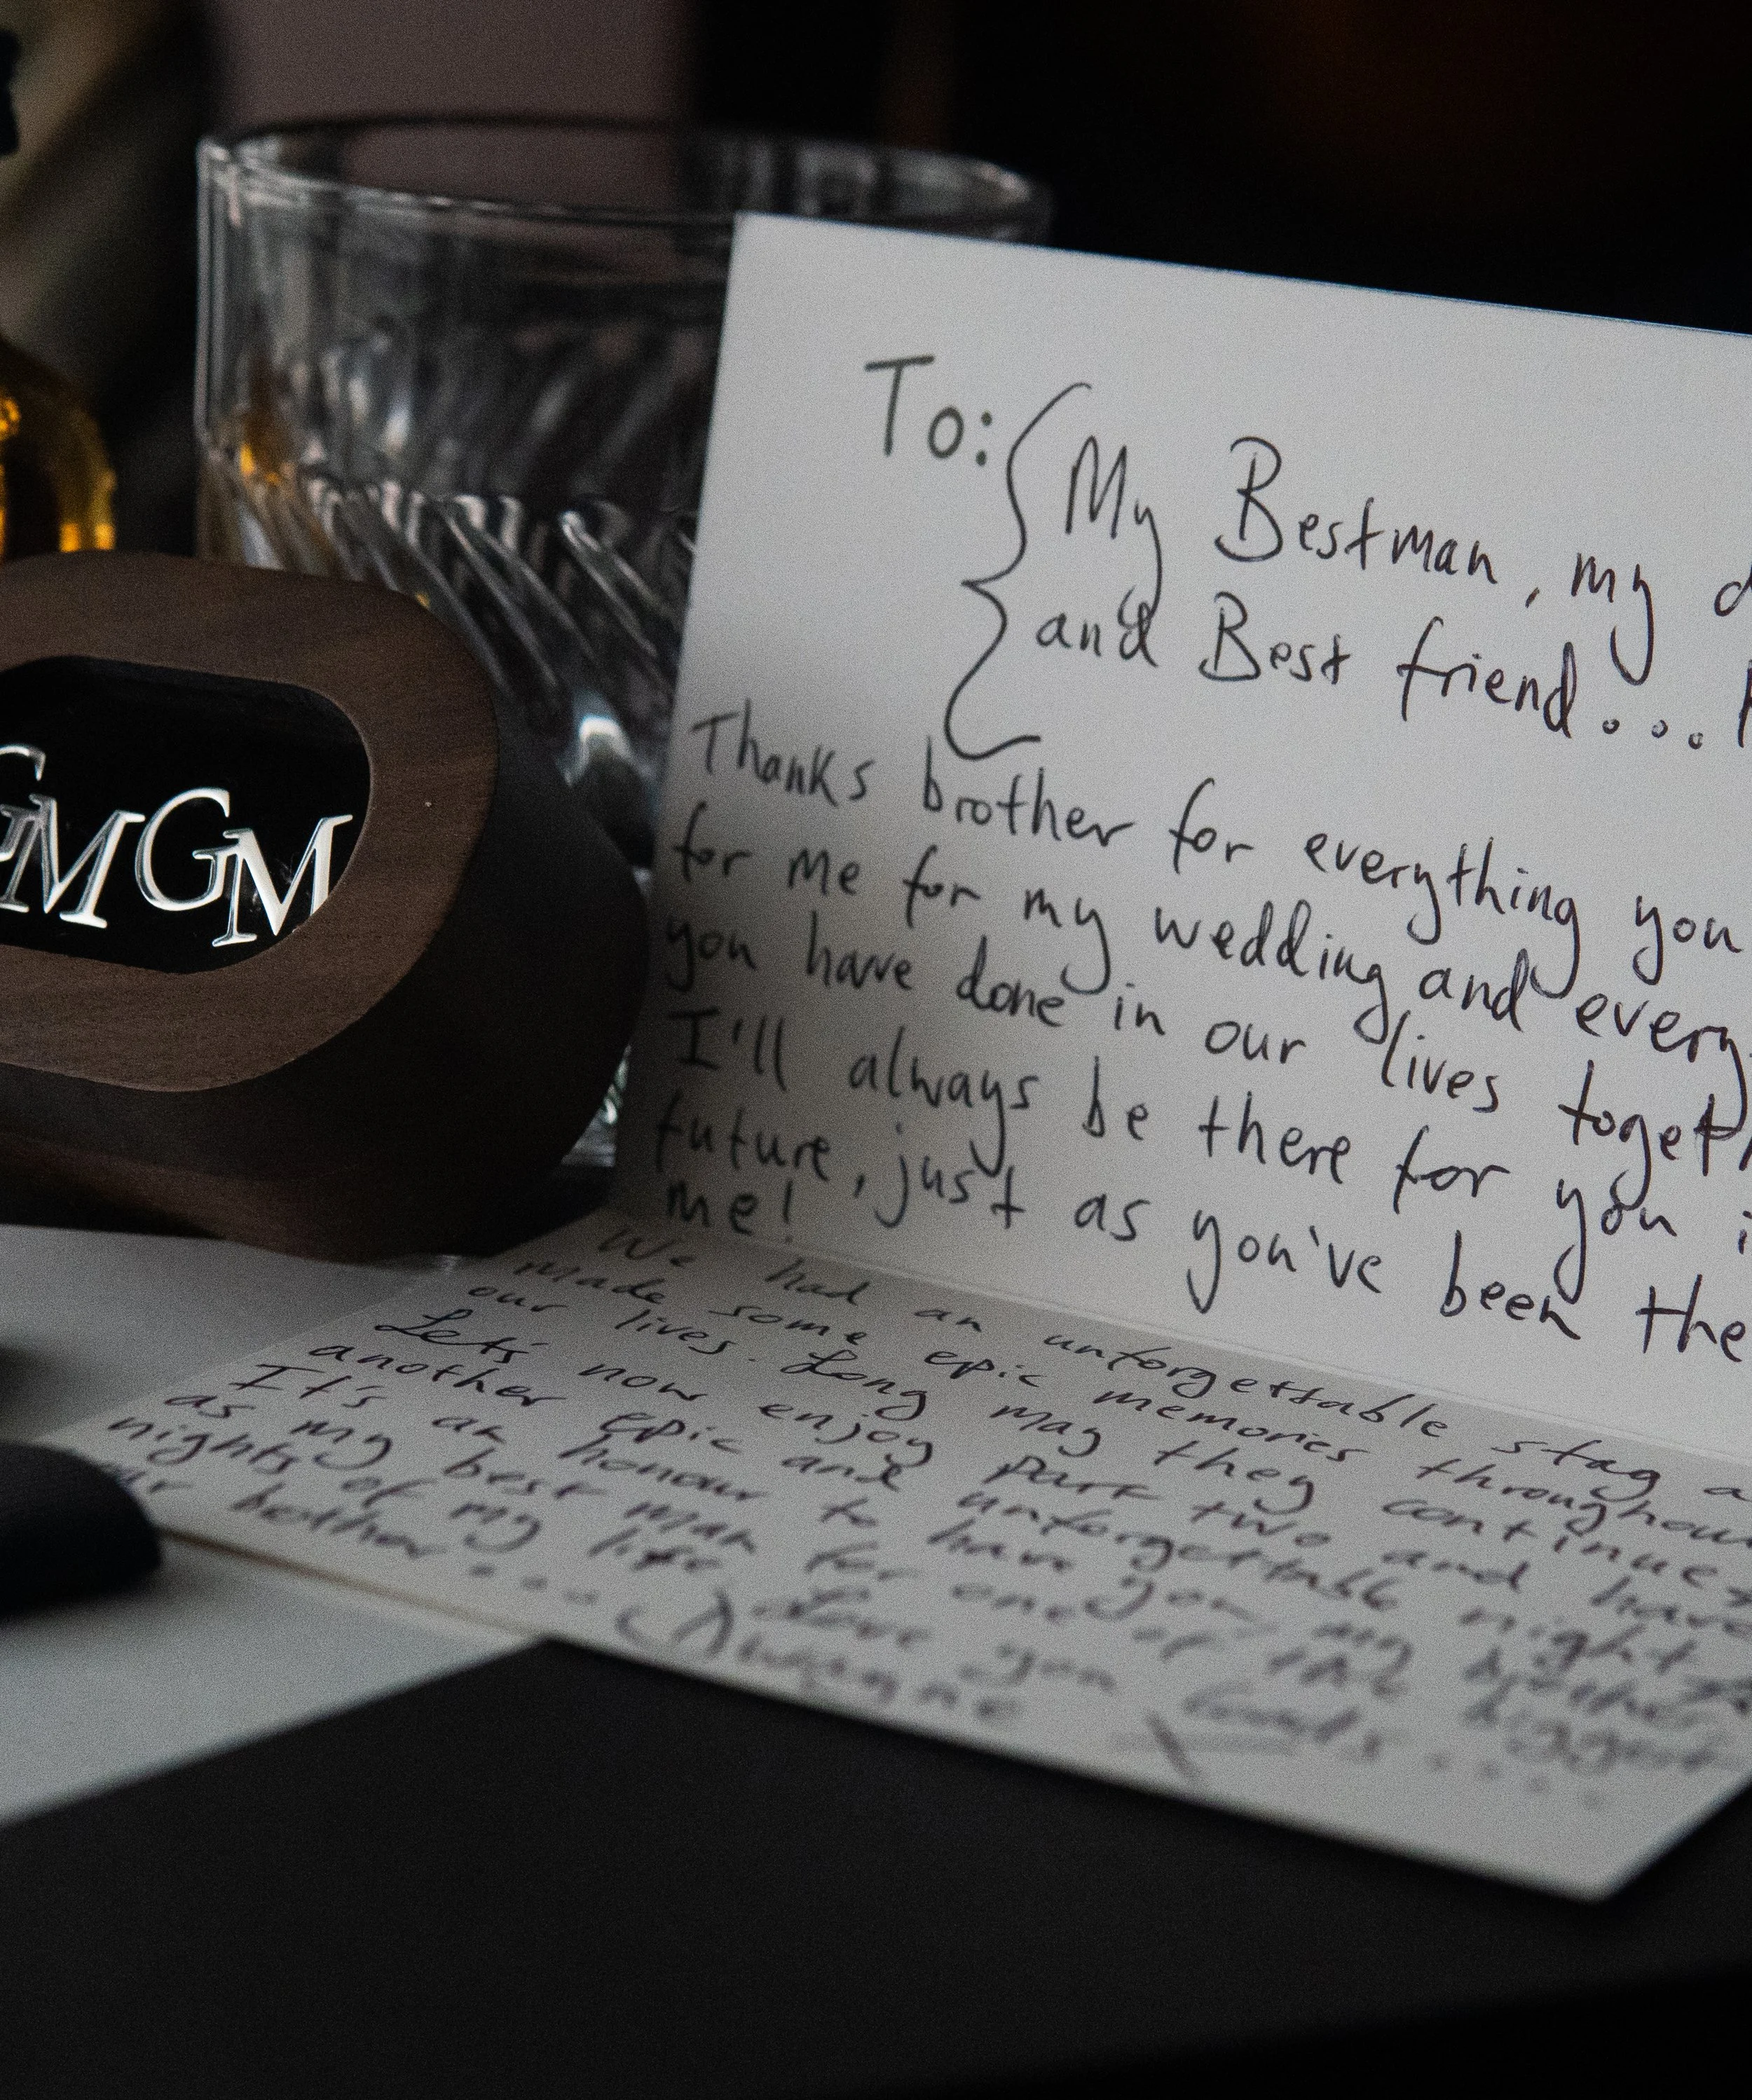 GM GM
To: My Bestman, my
and Best friend...
Thanks brother for everything you
for me for my wedding and every
you have done in our lives togeth
I'll always be there for you i
future, just as you've been the
me!
We had an unforgettable stag a
made some epic memories throughou
our lives. Long may they continue
Let's now enjoy part two and have
another epic and unforgettable night
It's an honour to have you, my brother
as my best man for one of the biggest
nights of my life. Love you loads....
ur brother....
Dwayne